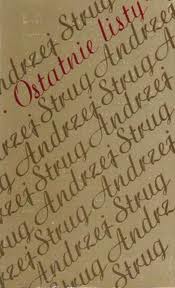 ndrzej
Ostatnie listy
ndrzej Strug Andrzej
Strug Andrzej Strug
Andrzej Strug Andrzej
Strug Andrzej Strug
Andrzej Strug
Strug Andrz